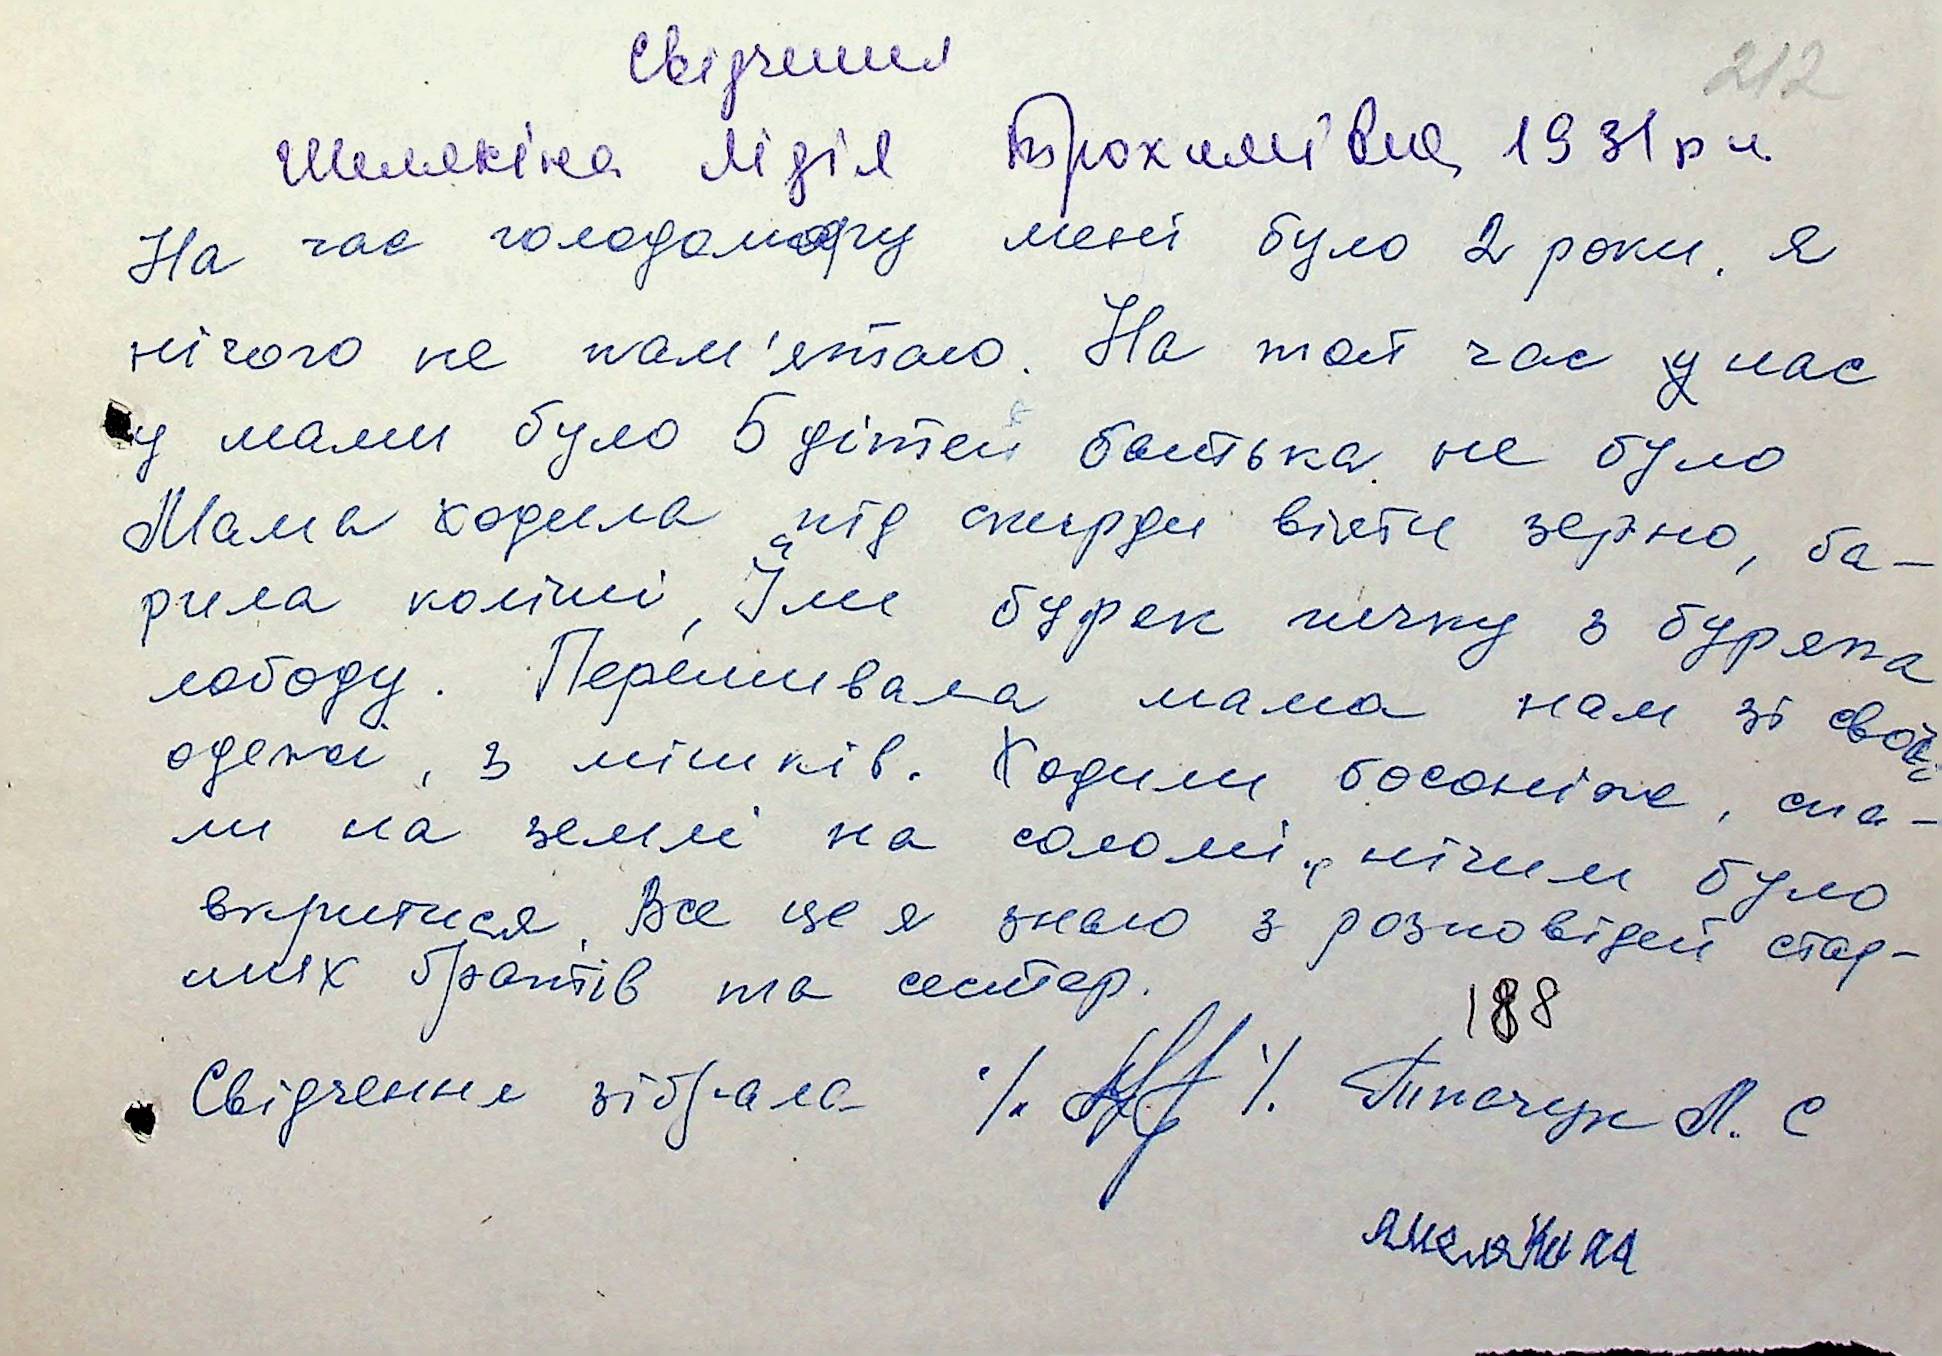 Свідчення
212
Шемякіна Лідія Трохимівна 1931 р н.
На час голодомору мені було 2 роки. я
нічого не пам'ятаю. На той час у нас
у мами було 5 дітей батька не було
Мама ходила під скирди віяти зерно, ба-
рила колічі, Їли буряк гичку з буряка
лободу. Перешивала мама нам зі своєї
одежі, з мішків. Ходили босоніж, спа-
ли на землі на соломі, нічим було
вкритися. Все це я знаю з розповідей стар-
ших братів та сестер.
188
Свідчення зібрала /. ./ Ткачук Л. С